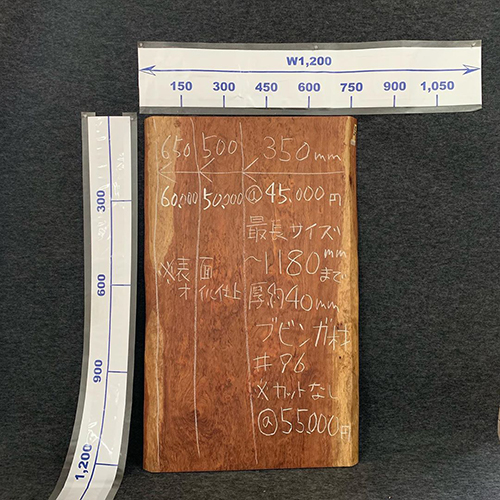 W1,200
150 300 450 600 750 900 1,050
300
600
900
1,200
650 500 350mm
60,000 50,000 @45,000円
最長サイズ
~1180mmまで
※表面
オイル仕上
厚約40mm
ブビンガ材
#96
※カットなし
@55,000円